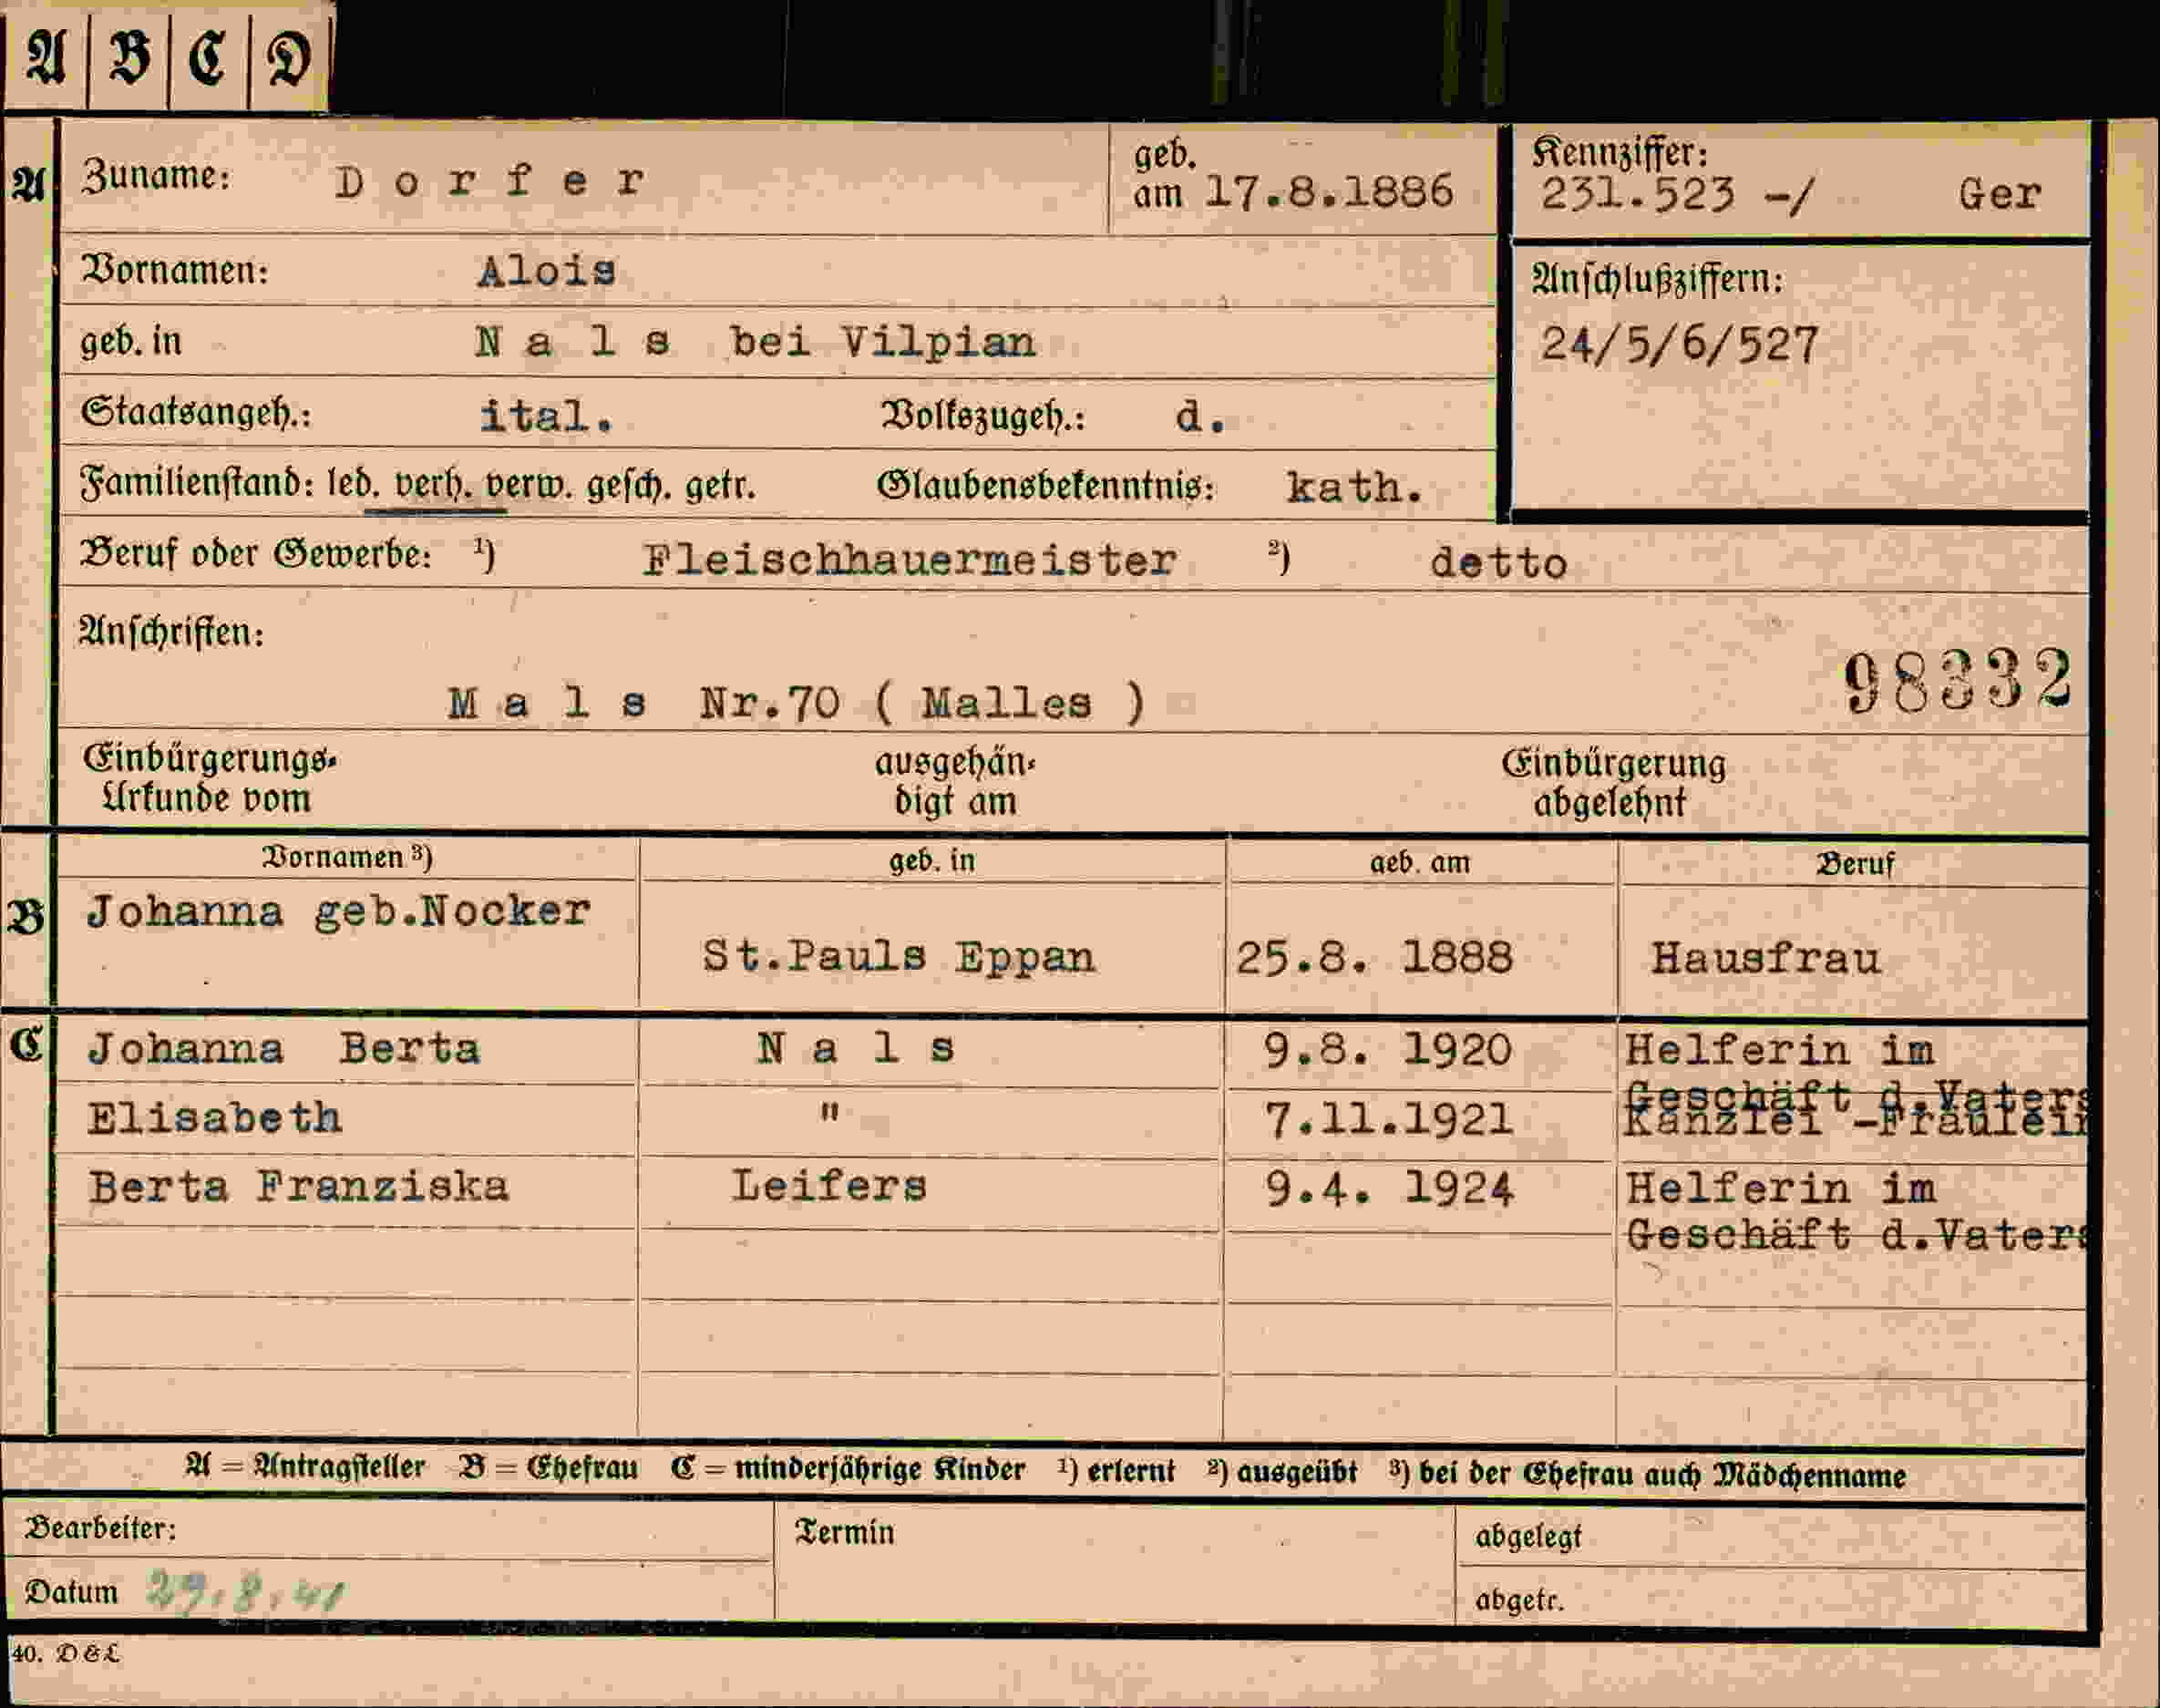 A B C D
A Zuname: Dorfer geb. am 17.8.1886 Kennziffer: 231.523 -/ Ger
Vornamen: Alois Anschlußziffern:
geb. in Nals bei Vilpian 24/5/6/527
Staatsangeh.: ital. Volkszugeh.: d.
Familienstand: led. verh. verw. gesch. getr. Glaubensbekenntnis: kath.
Beruf oder Gewerbe: ¹) Fleischhauermeister ²) detto
Anschriften:
98332
Mals Nr.70 ( Malles )
Einbürgerungs- ausgehän- Einbürgerung
Urkunde vom digt am abgelehnt
Vornamen ³) geb. in geb. am Beruf
B Johanna geb.Nocker
St.Pauls Eppan 25.8. 1888 Hausfrau
C Johanna Berta Nals 9.8. 1920 Helferin im
Geschäft d.Vaters
Elisabeth " 7.11.1921 Kanzlei -Fräulein
Berta Franziska Leifers 9.4. 1924 Helferin im
Geschäft d.Vaters
A = Antragsteller B = Ehefrau C = minderjährige Kinder ¹) erlernt ²) ausgeübt ³) bei der Ehefrau auch Mädchenname
Bearbeiter: Termin abgelegt
Datum 29.8.41 abgetr.
40. D & L